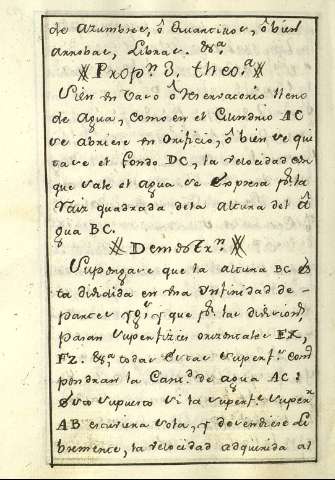 de azumbres, ô Quartillos, ô bien
Arrobas, Libras. &ª.
Propn. 3. theo.ª
Si en un Vaso ô Reservatorio lleno
de Agua, como en el Cilindrio AC
se abriese un Orificio, ô bien se qui
tase el fondo DC, la velocidad con
que sale el agua se Expresa pr. la
raiz quadrada dela altura del â
gua BC.
Demostrn.
Supongase que la altura BC. es
ta dividida en una Infinidad de
partes yg.s y que pr. las divisions,
pasan superfizies orizontales EX,
FZ. &ª, todas Estas superfs. com
pondran la Cantd. de agua AC:
Esto supuesto si la superfe. superr.
AB estuviera sola, y dezendiese Li
bremente, la velocidad adquirida al